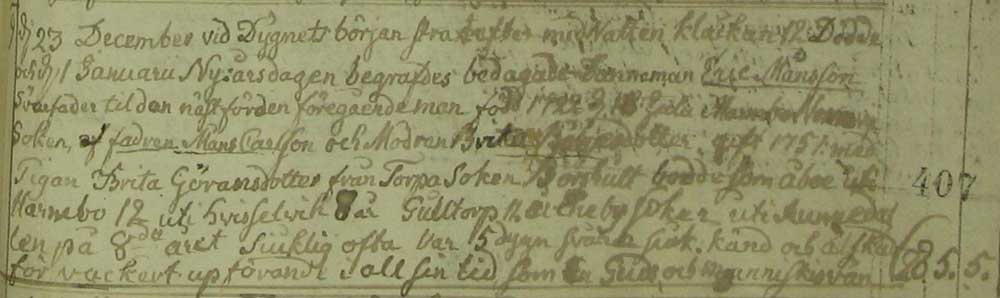 d 23 December vid Dygnets början strax efter midNatten klåckan 12 Dödde
och d 1 Januarii Ny:årsdagen begrafdes bedagade Danneman Eric Månsson
Svärfader til den näst förden föregående man född 1722 d 18
Soken, af fadren Måns Carlsson och Modren Brita gift 1751 med
Pigan Brita Göransdotter från Torpa Soken Bornhult bodde som åboe uti
407
Harnebo 12 uti Hvisselvik 8 år Gulltorp 11 soken uti
len på 8de året Siuklig ofta var 5 dygn svåra siuk. känd och älskad
85.5.
för vackert upförande i all sin tid som en Guds och människovän